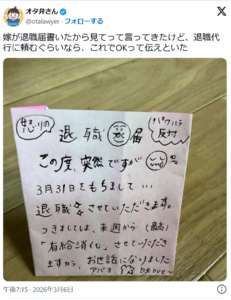 オタ弁さん
@otalawyer
嫁が退職届書いたから見てって言ってきたけど、退職代
行に頼むぐらいなら、これでOKって伝えといた
怒りの
退職届
パワハラ
反対
この度、突然ですが
3月31日をもちまして…
退職させていただきます。
つきましては、来週から(最高)
「有給消化」させていただき
ますから、お世話になりました
午後7:15 · 2026年3月6日